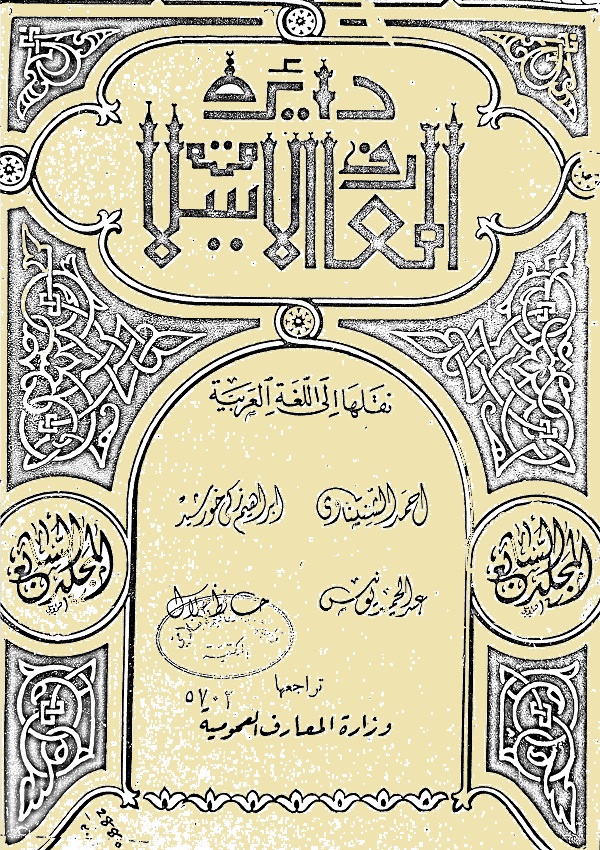 دائرة
المعارف الإسلامية
نقلها إلى اللغة العربية
أحمد الشنتناوى
ابراهيم زكى خورشيد
عبد الحميد يونس
حافظ جلال
المجلد السابع
المجلد السابع
المكتبة
تراجعها
٥٧٠٢
وزارة المعارف العمومية